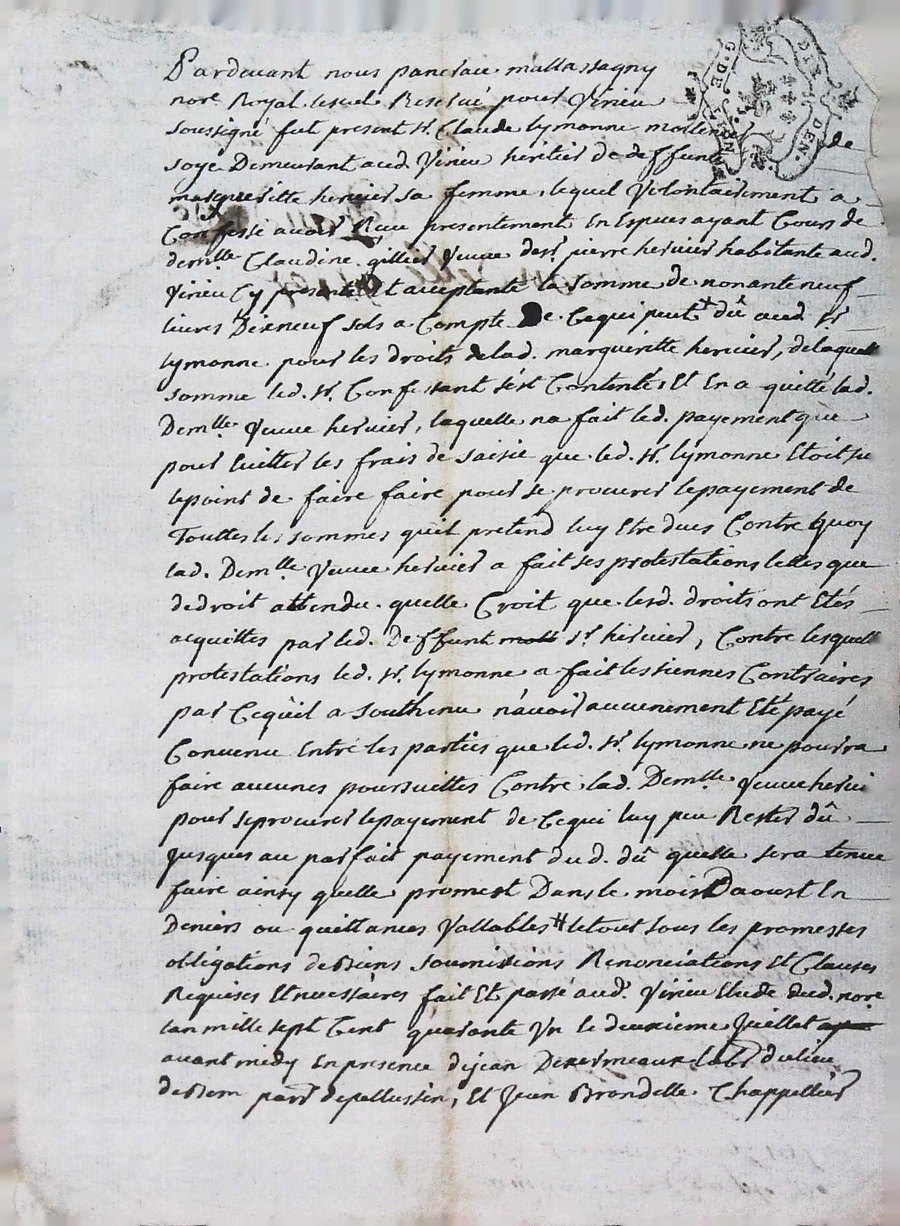 Pardevant nous pancrace mattassagny
nore Royal Reservé pour Virieu
soussigné fut present Sr. Claude Lymonne moulinier de
soye Demeurant aud. Virieu heritier de deffunte
margueritte hervier sa femme, lequel Volontairement a
Confessé avoir Reçu presentement En Especes ayant Cours de
demlle Claudine gillier Veuve de sr. pierre hervier habitante aud.
Virieu Cy presente Et acceptante la somme de nonante neuf
livres Dixneuf sols a Compte De Cequi peut dû aud. Sr
Lymonne pour les droits delad. margueritte hervier, delaquelle
somme led. Sr. Confessant s'est Contenté Et En a quitté lad.
Demlle Veuve hervier, laquelle na fait led. payement que
pour Eviter les frais de saisie que led. Sr. Lymonne Etoit sur
lepoint de faire faire pour se procurer lepayement de
Touttes les sommes quil pretend luy Etre dues Contre quoy
lad. Demlle Veuve hervier a fait ses protestations telles que
dedroit attendu quelle Croit que lesd. droits ont Etés
acquittes par led. Deffunt sr hervier, Contre lesquelles
protestations led. Sr. Lymonne a fait les siennes Contraires
par Cequil a Southenu n'avoir aucunement Eté payé
Convenu Entre les parties que led. Sr. Lymonne ne pourra
faire aucunes poursuittes Contre lad. Demlle Veuve hervier
pour seprocurer lepayement de Cequi luy peu Rester dû
jusques au parfait payement dud. dû quelle sera tenue
faire ainsy quelle promest Dans le mois Daoust En
Deniers ou quittances Vallables # letout sous les promesses
obligations de Biens soumissions Renonciations Et Clauses
Requises Et necessaires fait Et passé aud. Virieu Etude dud. nore
lan mille sept Cent quarante Un le deuxieme Juillet
avant midy En presence de jean labr dulieu
de parr. depellussin, Et Jean Brondelle Chappellier
G. DE LYON
DEN.